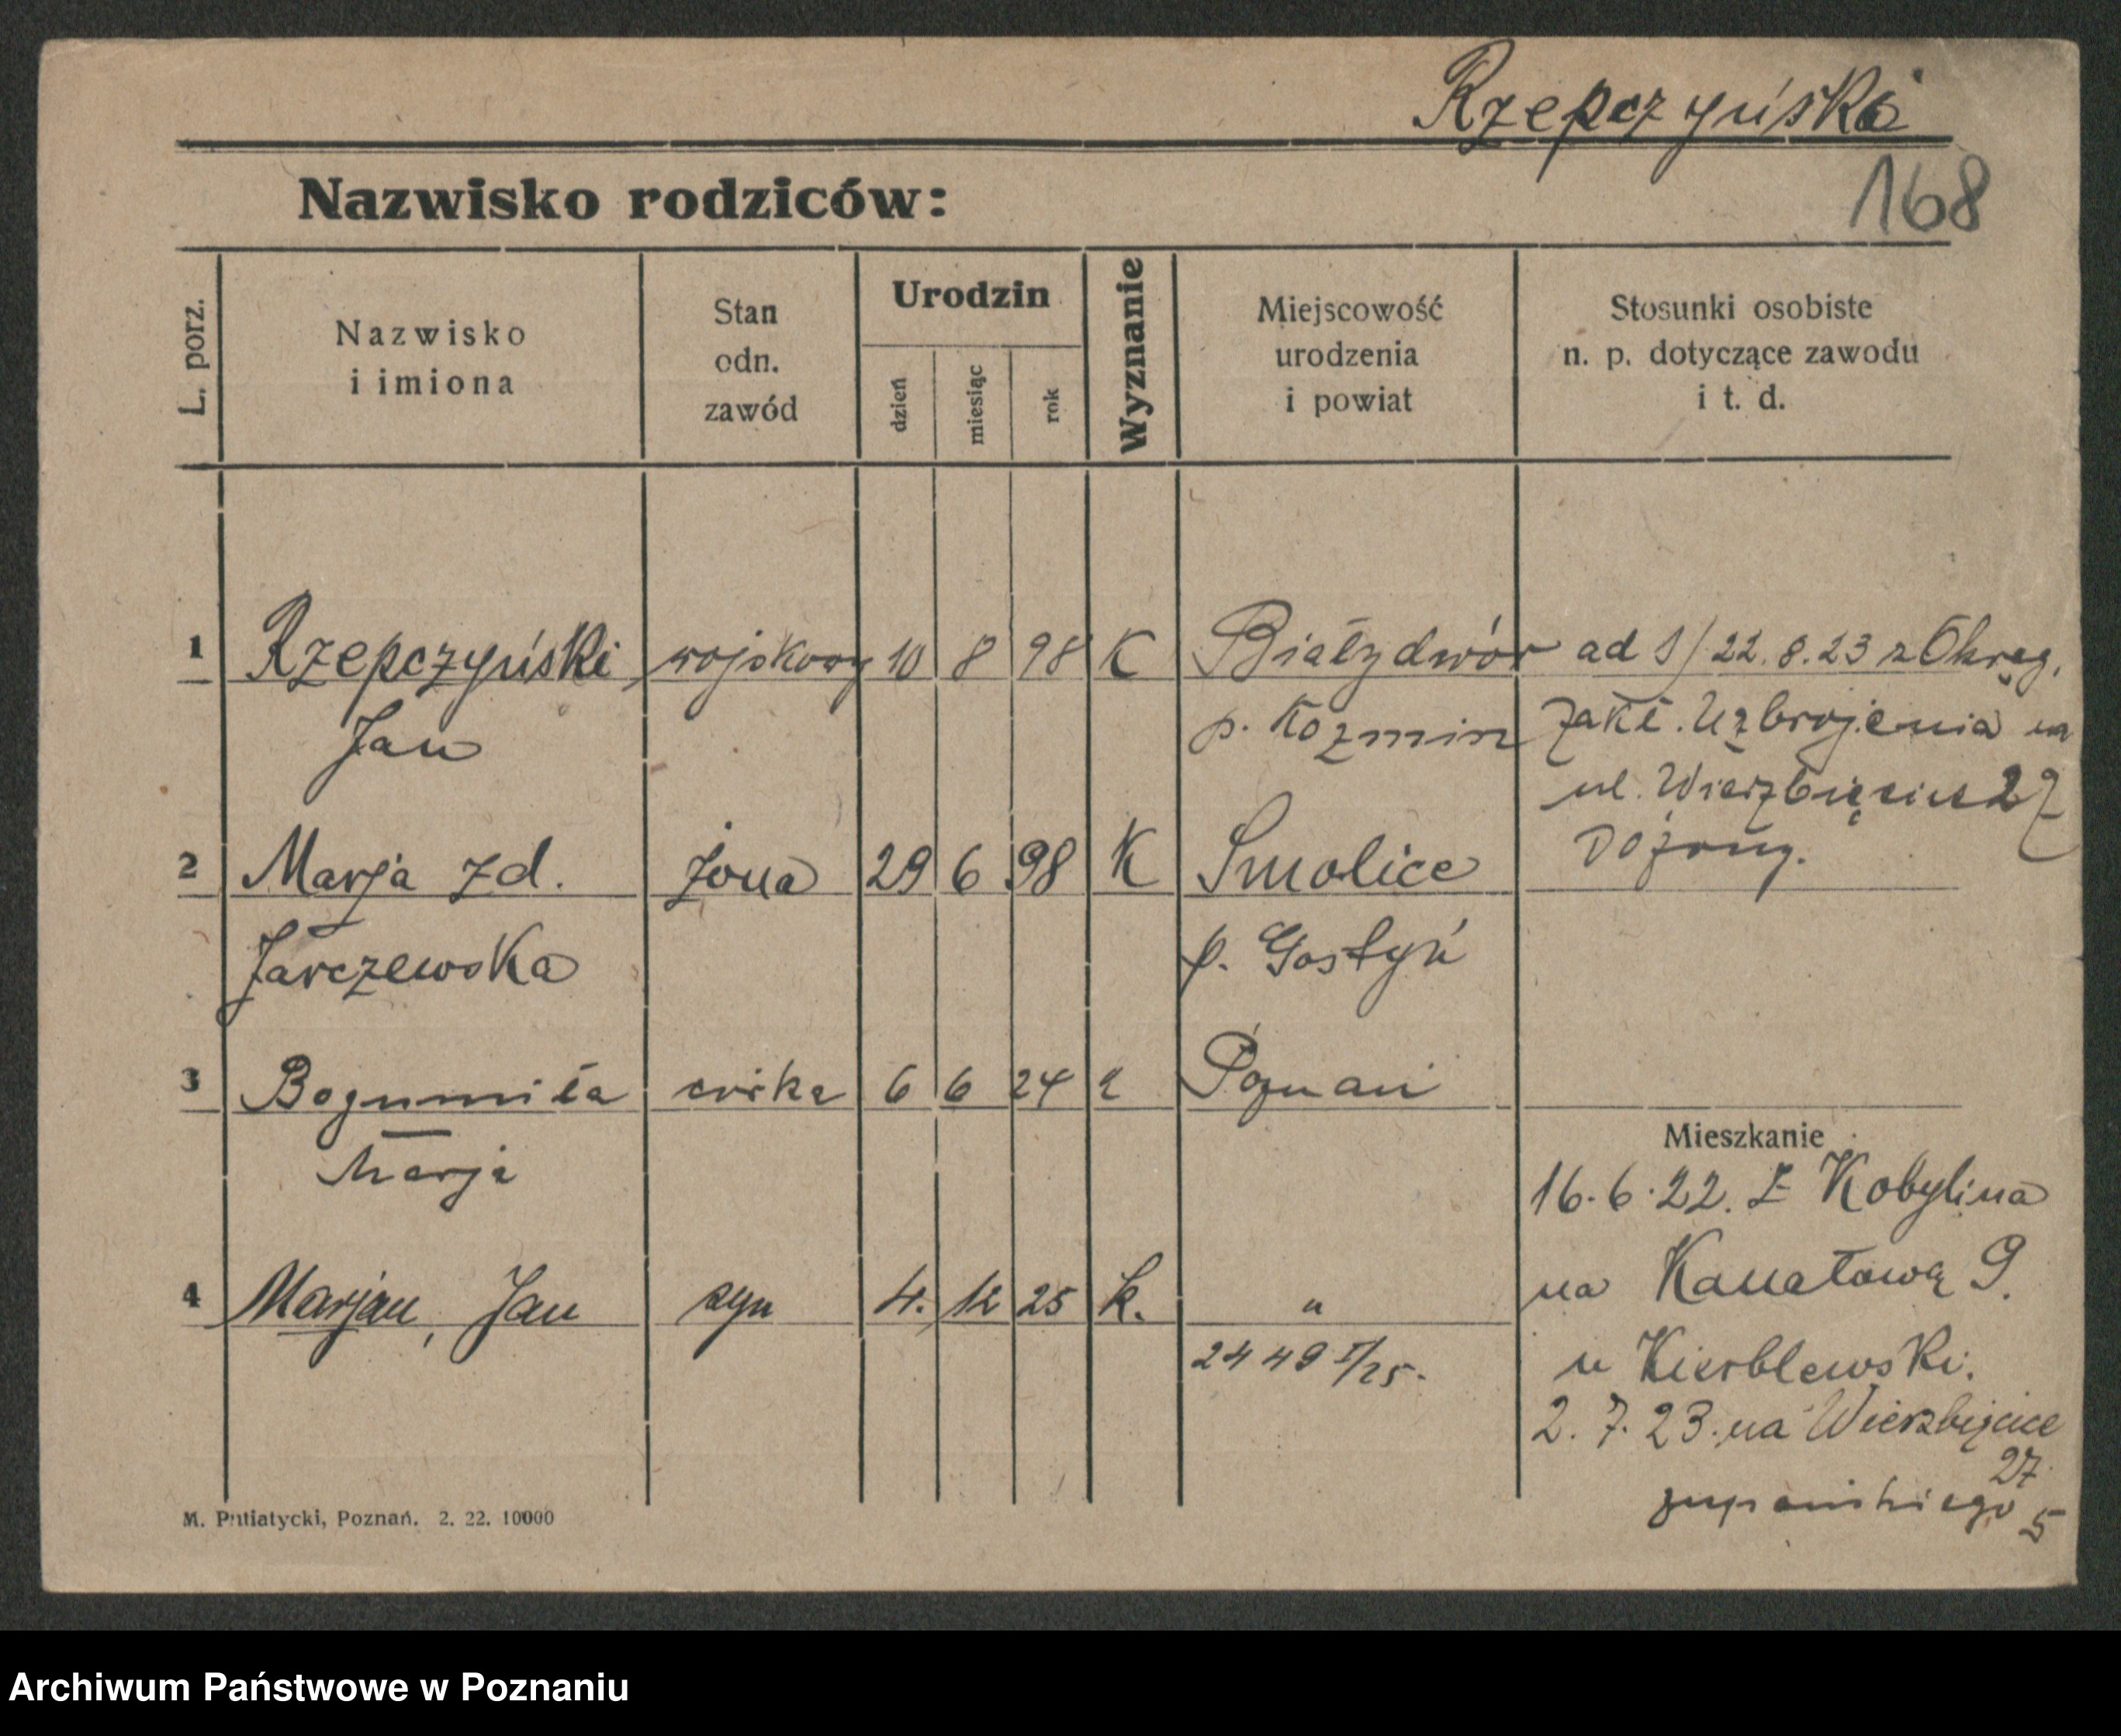 Rzepczyński
168
Nazwisko rodziców:
L. porz.
Nazwisko
i imiona
Stan
odn.
zawód
Urodzin
dzień
miesiąc
rok
Wyznanie
Miejscowość
urodzenia
i powiat
Stosunki osobiste
n. p. dotyczące zawodu
i t. d.
1 Rzepczyński, wojskowy 10 8 98 K Białydwór
Jan p. Kozmin
ad 1/ 22.8.23 z Okręg.
Zakł. Uzbrojenia na
ul. Wierzbięcice 27
2 Marja zd. żona 29 6 98 K Smolice
Jarczewska p. Gostyń
3 Bogumiła córka 6 6 24 Poznań
Marja
4 Marjan, Jan syn 4. 12 25 k. "
2449 I/25.
Mieszkanie
16.6.22. z Kobylina
na Kanałową 9.
u Kierblewski.
2.7.23. na Wierzbięcice
27
5
M. Putiatycki, Poznań. 2. 22. 10000
Archiwum Państwowe w Poznaniu